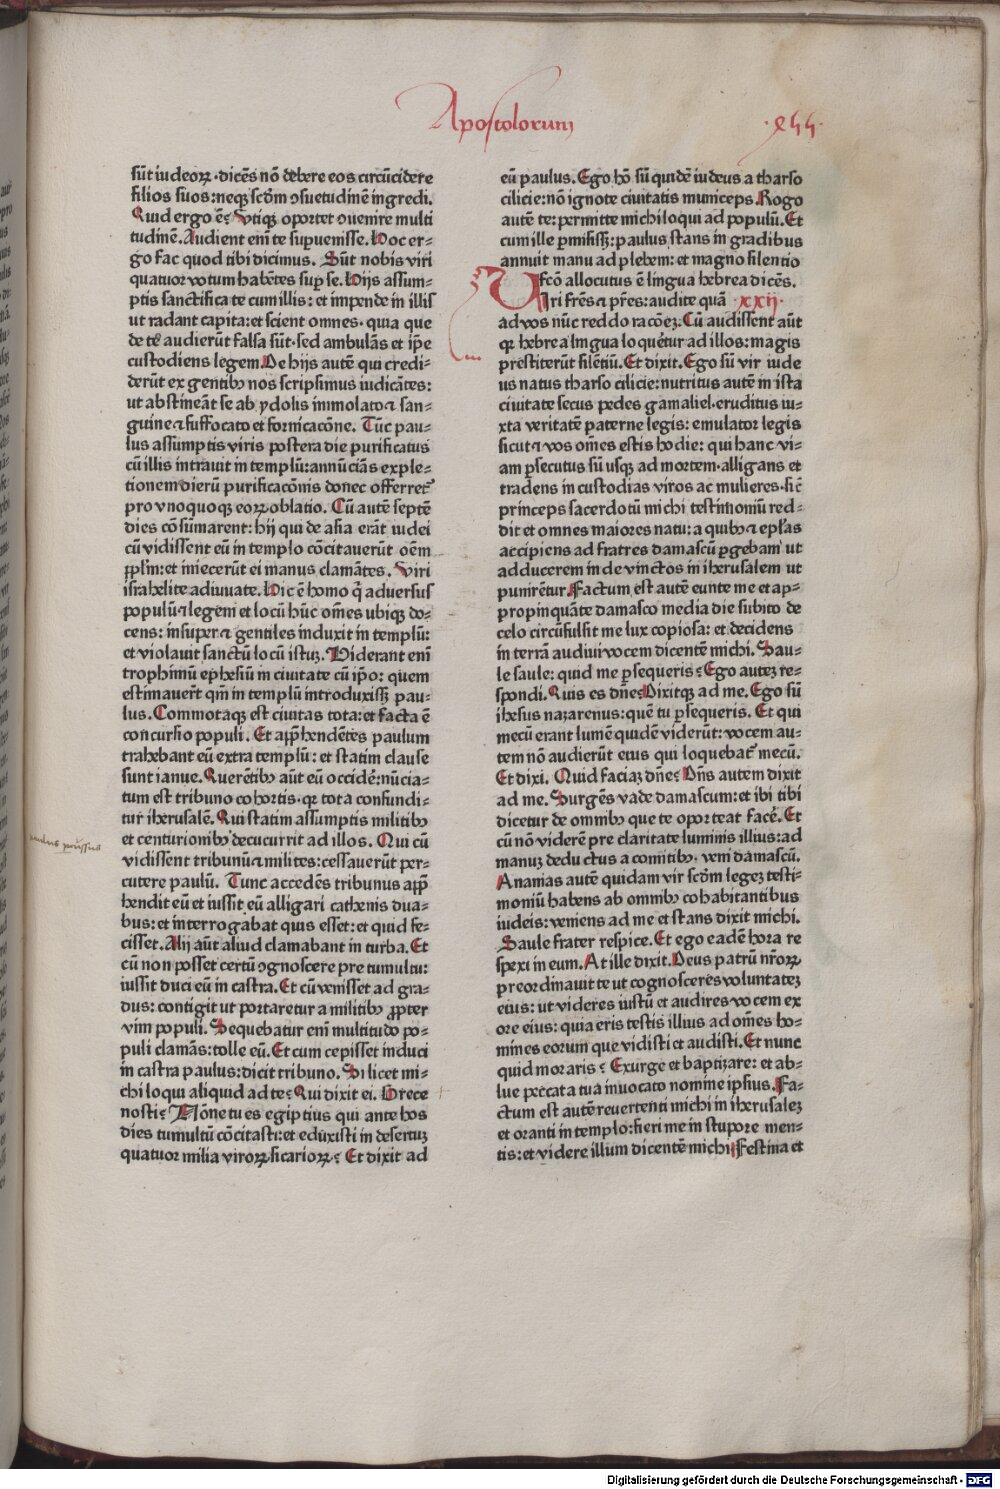 Apostolorum
.244.
sūt iudeoꝝ·dicēs nō debere eos circūcidere
filios suos:neqꝫ scd̄m ꝯsuetudinē ingredi.
Quid ergo ē? Vtiqꝫ oportet ꝯuenire multi
tudinē.Audient eni te supuenisse.Hoc er-
go fac quod tibi dicimus. Sūt nobis viri
quatuor votum habētes sup se.Hijs assum-
ptis sanctifica te cum illis:et impende in illis
ut radant capita:et scient omnes·quia que
de te audierūt falsa sūt·sed ambulās et ip̄e
custodiens legem.De hijs autē qui credi-
derūt ex gentibꝰ nos scripsimus iudicātes:
ut abstineāt se ab ydolis immolato⁊ san-
guine⁊ suffocato et fornicacōne. Tūc pau-
lus assūmptis viris postera die purificatus
cū illis intrauit in templū:annūciās exple-
tionem dierū purificacōnis donec offerret᷑
pro vnoquoqꝫ eoꝝ oblatio. Cū autē septē
dies cōsūmarent:hij qui de asia erāt iudei
cū vidissent eū in templo cōcitauerūt oēm
ppl̄m:et iniecerūt ei manus clamātes. Viri
israhelite adiuuate.Hic ē homo q̄ aduersus
populū⁊legem et locū hūc omēs ubiqꝫ do-
cens:insuper⁊ gentiles induxit in templū:
et violauit sanctū locū istuꝫ.Viderant eni
trophimū ephesiū in ciuitate cū ip̄o:quem
estimauert̄ qm̄ in templū introduxissꝫ pau-
lus.Commotaqꝫ est ciuitas tota:et facta ē
concursio populi. Et app̄hendētes paulum
trahebant eū extra templū:et statim clause
sunt ianue.Querētibꝰ aūt eū occidē:nūcia-
tum est tribuno cohortis·qꝛ tota confundi-
tur iherusalē.Qui statim assumptis militibꝰ
et centurionibꝰ decucurrit ad illos. Qui cū
vidissent tribunū⁊ milites:cessauerūt per-
cutere paulū. Tunc accedēs tribunus app̄
hendit eū et iussit eū alligari cathenis dua-
bus:et interrogabat quis esset:et quid fe-
cisset.Alij aūt aliud clamabant in turba.Et
cū non posset certū ꝯgnoscere pre tumultu:
iussit duci eū in castra.Et cū venisset ad gra-
dus:contigit ut portaretur a militibꝰ ꝓpter
vim populi.Sequebatur eni multitudo po-
puli clamās:tolle eū.Et cum cepisset induci
in castra paulus:dicit tribuno.Si licet mi-
chi loqui aliquid ad te?Qui dixit ei. Grece
nosti? Nōne tu es egiptius qui ante hos
dies tumultū cōcitasti:et eduxisti in desertuꝫ
quatuor milia viroꝝ sicarioꝝ? Et dixit ad
eū paulus.Ego hō sū quidē iudeus a tharso
cilicie:nō ignote ciuitatis municeps.Rogo
autē te:permitte michi loqui ad populū.Et
cum ille pmisissꝫ:paulus stans in gradibus
annuit manu ad plebem:et magno silentio
fcō allocutus ē lingua hebrea dicēs.
Viri frēs⁊ pr̄es:audite quā ·xxij·
ad vos nūc reddo racōeꝫ.Cū audissent aūt
qꝛ hebrea lingua loquēt᷑ ad illos:magis
prestiterūt silētiū.Et dixit.Ego sū vir iude
us natus tharso cilicie:nutritus autē in ista
ciuitate secus pedes gamaliel·eruditus iu-
xta veritatē paterne legis:emulator legis
sicut⁊ vos omēs estis hodie:qui hanc vi-
am psecutus sū usqꝫ ad mortem·alligans et
tradens in custodias viros ac mulieres·sic̄
princeps sacerdotū michi testimoniū red-
dit et omnes maiores natu:a quibꝰ⁊ ep̄las
accipiens ad fratres damascū pgebam ut
adducerem inde vinctos in iherusalem ut
punirētur.Factum est autē eunte me et ap-
propinquāte damasco media die subito de
celo circūfulsit me lux copiosa:et decidens
in terrā audiui vocem dicentē michi.Sau-
le saule:quid me psequeris?Ego auteꝫ re-
spondi.Quis es dn̄e?Dixitqꝫ ad me.Ego sū
ihesus nazarenus:quē tu psequeris. Et qui
mecū erant lumē quidē viderūt:vocem au-
tem nō audierūt eius qui loquebat᷑ mecū.
Et dixi. Quid faciaꝫ dn̄e?Dn̄s autem dixit
ad me.Surgēs vade damascum:et ibi tibi
dicetur de omnibꝰ que te oporteat facē.Et
cū nō viderē pre claritate luminis illius:ad
manuꝫ deductus a comitibꝰ·veni damascū.
Ananias autē quidam vir scd̄m legeꝫ testi-
moniū habens ab omnibꝰ cohabitantibus
iudeis:veniens ad me et stans dixit michi.
Saule frater respice.Et ego eadē hora re
spexi in eum.At ille dixit.Deus patrū nr̄oꝝ
preordinauit te ut cognosceres voluntateꝫ
eius:ut videres iustū et audires vocem ex
ore eius:quia eris testis illius ad omēs ho-
mines eorum que vidisti et audisti.Et nunc
quid moraris? Exurge et baptizare:et ab-
lue peccata tua inuocato nomine ipsius.Fa-
ctum est autē reuertenti michi in iherusaleꝫ
et oranti in templo:fieri me in stupore men-
tis:et videre illum dicentē michi.Festina et
Digitalisierung gefördert durch die Deutsche Forschungsgemeinschaft - DFG